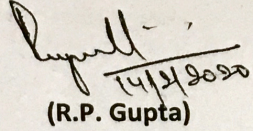 14/2/2020
(R.P. Gupta)